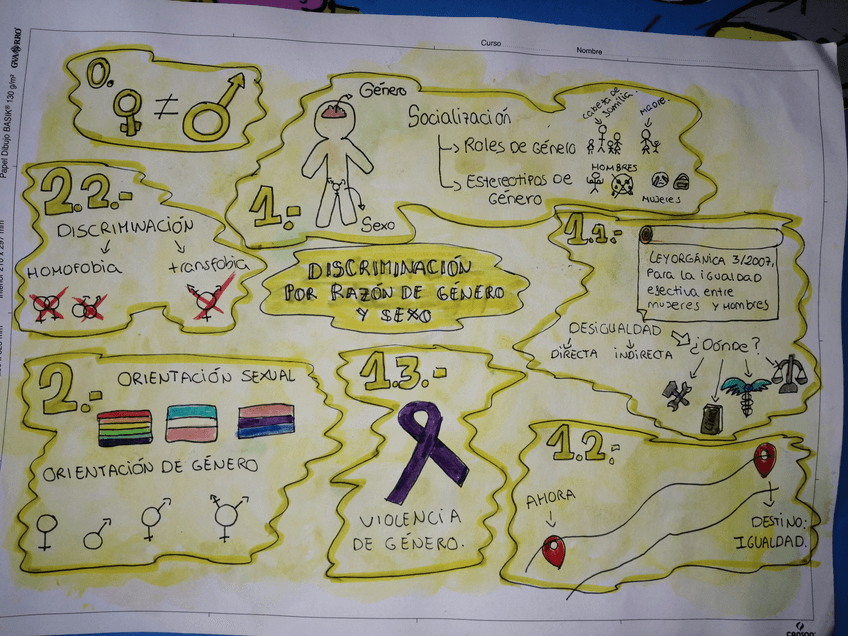 Curso
Nombre
GVARRO
Papel Dibujo BASIK® 130 g/m²
0.
≠
1.-
Género
Sexo
Socialización
Roles de Género
Estereotipos de
Género
cabeza de
familia.
madre.
HOMBRES
mujeres
2.2.-
DISCRIMINACIÓN
HOMOFOBIA
transfobia
DISCRIMINACIÓN
POR RAZÓN DE GÉNERO
Y SEXO
1.1.-
LEY ORGÁNICA 3/2007,
Para la igualdad
efectiva entre
mujeres y Hombres
DESIGUALDAD
DIRECTA
INDIRECTA
¿DÓNDE?
2.-
ORIENTACIÓN SEXUAL
ORIENTACIÓN DE GÉNERO
1.3.-
VIOLENCIA
DE GÉNERO.
1.2.-
AHORA
DESTINO:
IGUALDAD.